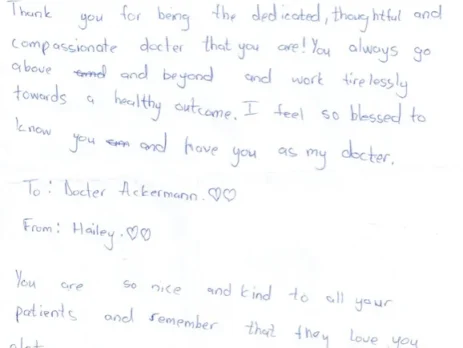 Thank you for being the dedicated, thoughtful and
compassionate docter that you are! You always go
above and and beyond and work tirelessly
towards a healthy outcome. I feel so blessed to
know you and have you as my docter.
To: Docter Ackermann.♡♡
From: Hailey.♡♡
You are so nice and kind to all your
patients and remember that they love you
alot